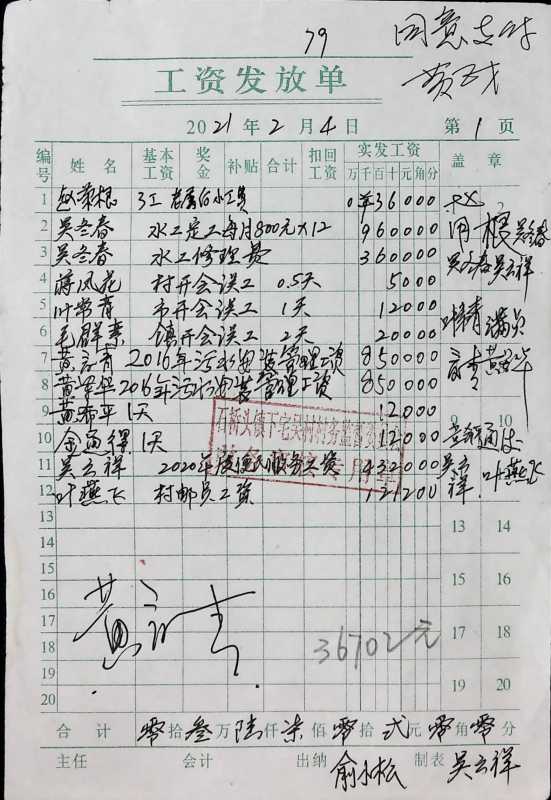 79
同意支付
工资发放单
2021年2月4日 第1页
编号 姓名 基本工资 奖金 补贴 合计 扣回工资 实发工资 万千百十元角分 盖章
1 赵菊根 3工 ¥36000
2 吴冬春 水工定工每月800元×12 960000
3 吴冬春 水工修理费 360000 吴冬春 吴云祥
4 蒋凤花 村开会误工 0.5天 5000
5 叶常青 市开会误工 1天 12000
6 毛群素 镇开会误工 2天 20000
7 黄永青 2016年污水安装管理工资 850000
8 2016年污水安装管理工资 850000
9 平 1天 12000 9 10
10 1天 12000
11 吴云祥 2020年度便民服务工资 432000 吴云祥
12 叶燕飞 村邮员工资 121200 叶燕飞
石桥头镇下宅吴村村务监督委员会
专用章
13 13 14
14
15 15 16
16
17 17 18
18
19 19 20
20
黄永青
36702元
合计 零拾叁万陆仟柒佰零拾贰元零角零分
主任 会计 出纳 俞小松 制表 吴云祥